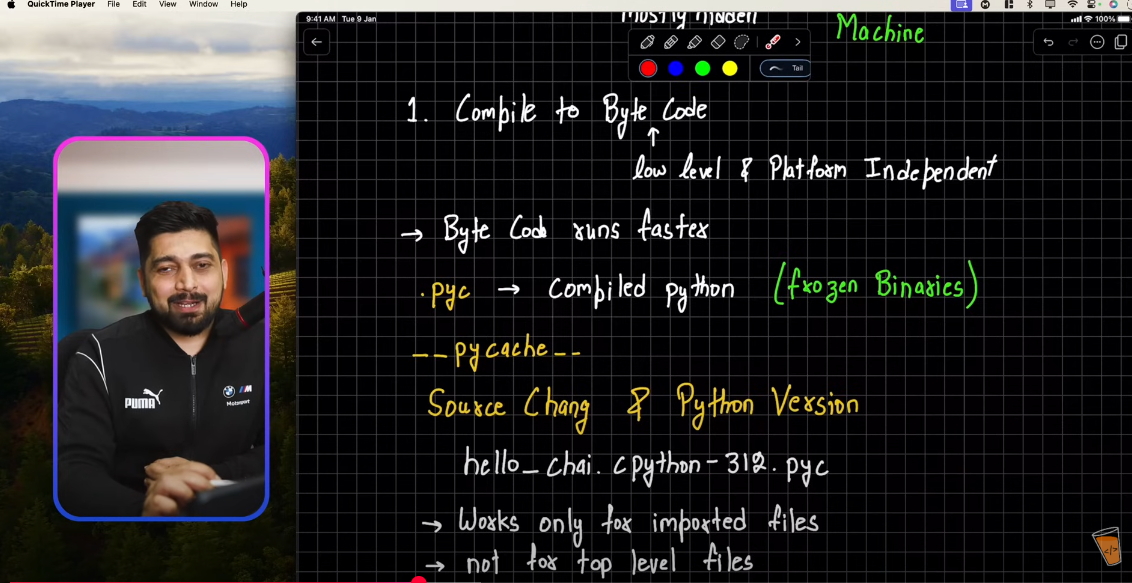 QuickTime Player File Edit View Window Help
9:41 AM Tue 9 Jan
100%
mostly hidden
Machine
Tail
1. Compile to Byte Code
low level & Platform Independent
→ Byte Code runs faster
.pyc → Compiled python (frozen Binaries)
--pycache--
Source Chang & Python Version
hello_chai.cpython-312.pyc
→ Works only for imported files
→ not for top level files
PUMA
M
Motorsport
</>